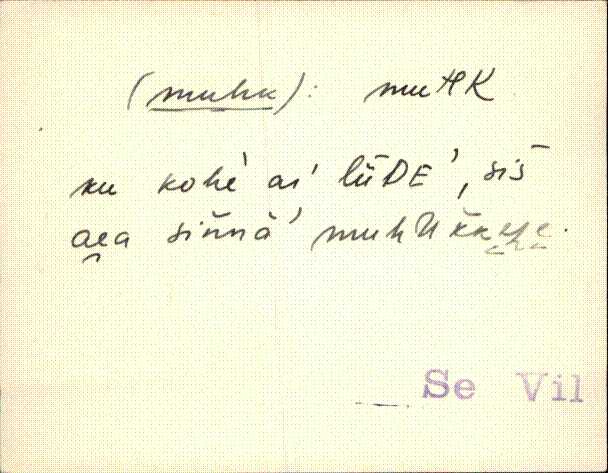 (muhk): muHK
ku kohè ai' lüDE', siš
aea sinnà' muhU kk
Se Vil